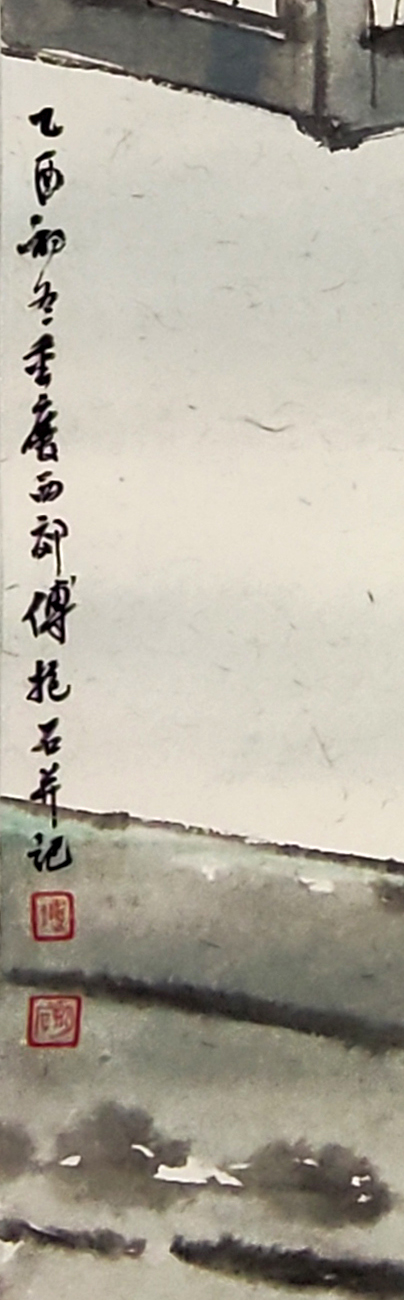 乙酉初冬重慶西郊傅抱石并記